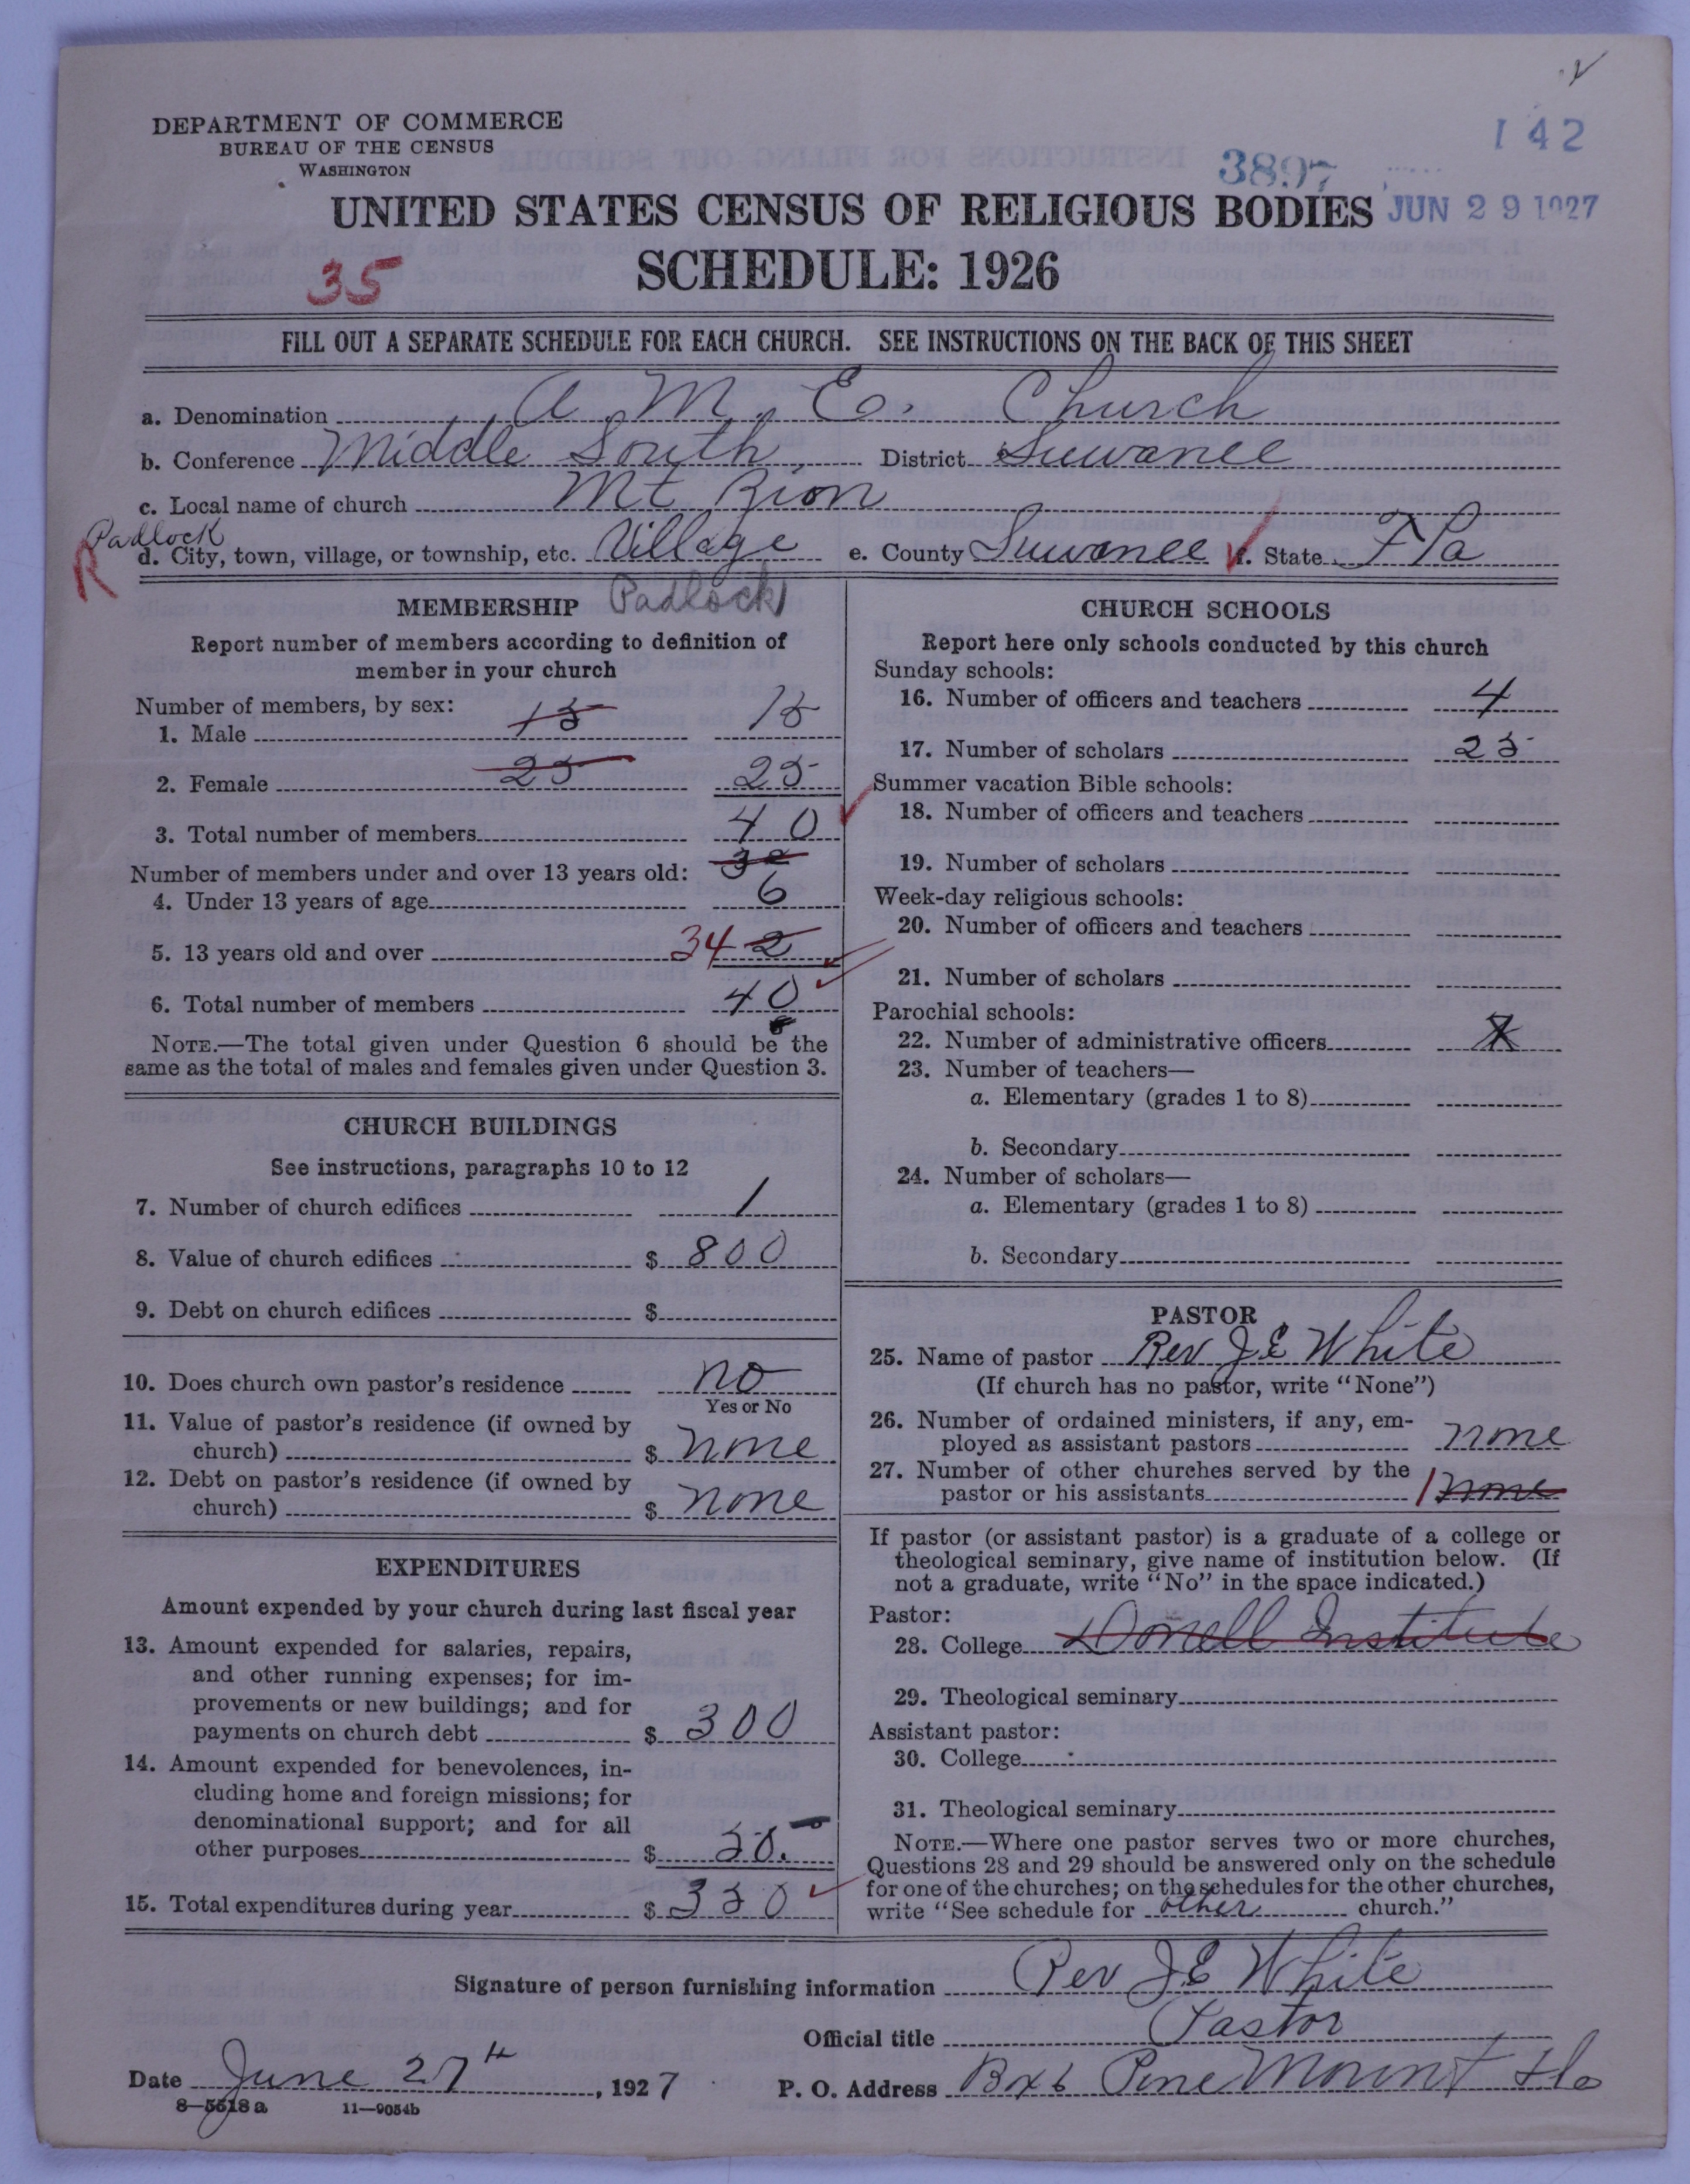 DEPARTMENT OF COMMERCE
BUREAU OF THE CENSUS
WASHINGTON
142
3897
JUN 29 1927
UNITED STATES CENSUS OF RELIGIOUS BODIES
35
SCHEDULE: 1926
FILL OUT A SEPARATE SCHEDULE FOR EACH CHURCH. SEE INSTRUCTIONS ON THE BACK OF THIS SHEET
a. Denomination A. M. E. Church
b. Conference Middle South District Suwanee
c. Local name of church Mt Zion
Padlock
R d. City, town, village, or township, etc. Village e. County Suwanee f. State Fla
Padlock
MEMBERSHIP
Report number of members according to definition of
member in your church
Number of members, by sex:
1. Male 15 15
2. Female 25 25
3. Total number of members 40
Number of members under and over 13 years old: 32
4. Under 13 years of age 6
5. 13 years old and over 34 2
6. Total number of members 40
NOTE.—The total given under Question 6 should be the
same as the total of males and females given under Question 3.
CHURCH BUILDINGS
See instructions, paragraphs 10 to 12
7. Number of church edifices 1
8. Value of church edifices $ 800
9. Debt on church edifices $
10. Does church own pastor's residence no
Yes or No
11. Value of pastor's residence (if owned by
church) $ none
12. Debt on pastor's residence (if owned by
church) $ none
EXPENDITURES
Amount expended by your church during last fiscal year
13. Amount expended for salaries, repairs,
and other running expenses; for im-
provements or new buildings; and for
payments on church debt $ 300
14. Amount expended for benevolences, in-
cluding home and foreign missions; for
denominational support; and for all
other purposes $
15. Total expenditures during year $
CHURCH SCHOOLS
Report here only schools conducted by this church
Sunday schools:
16. Number of officers and teachers 4
17. Number of scholars 25
Summer vacation Bible schools:
18. Number of officers and teachers
19. Number of scholars
Week-day religious schools:
20. Number of officers and teachers
21. Number of scholars
Parochial schools:
22. Number of administrative officers
23. Number of teachers—
a. Elementary (grades 1 to 8)
b. Secondary
24. Number of scholars—
a. Elementary (grades 1 to 8)
b. Secondary
PASTOR
25. Name of pastor Rev J E White
(If church has no pastor, write "None")
26. Number of ordained ministers, if any, em-
ployed as assistant pastors none
27. Number of other churches served by the
pastor or his assistants 1 none
If pastor (or assistant pastor) is a graduate of a college or
theological seminary, give name of institution below. (If
not a graduate, write "No" in the space indicated.)
Pastor:
28. College Institute
29. Theological seminary
Assistant pastor:
30. College
31. Theological seminary
NOTE.—Where one pastor serves two or more churches,
Questions 28 and 29 should be answered only on the schedule
for one of the churches; on the schedules for the other churches,
write "See schedule for other church."
Signature of person furnishing information Rev J E White
Official title Pastor
Date June 27th, 1927 P. O. Address Bx 6 Pine Mount Fla
8-5518a 11-9054b